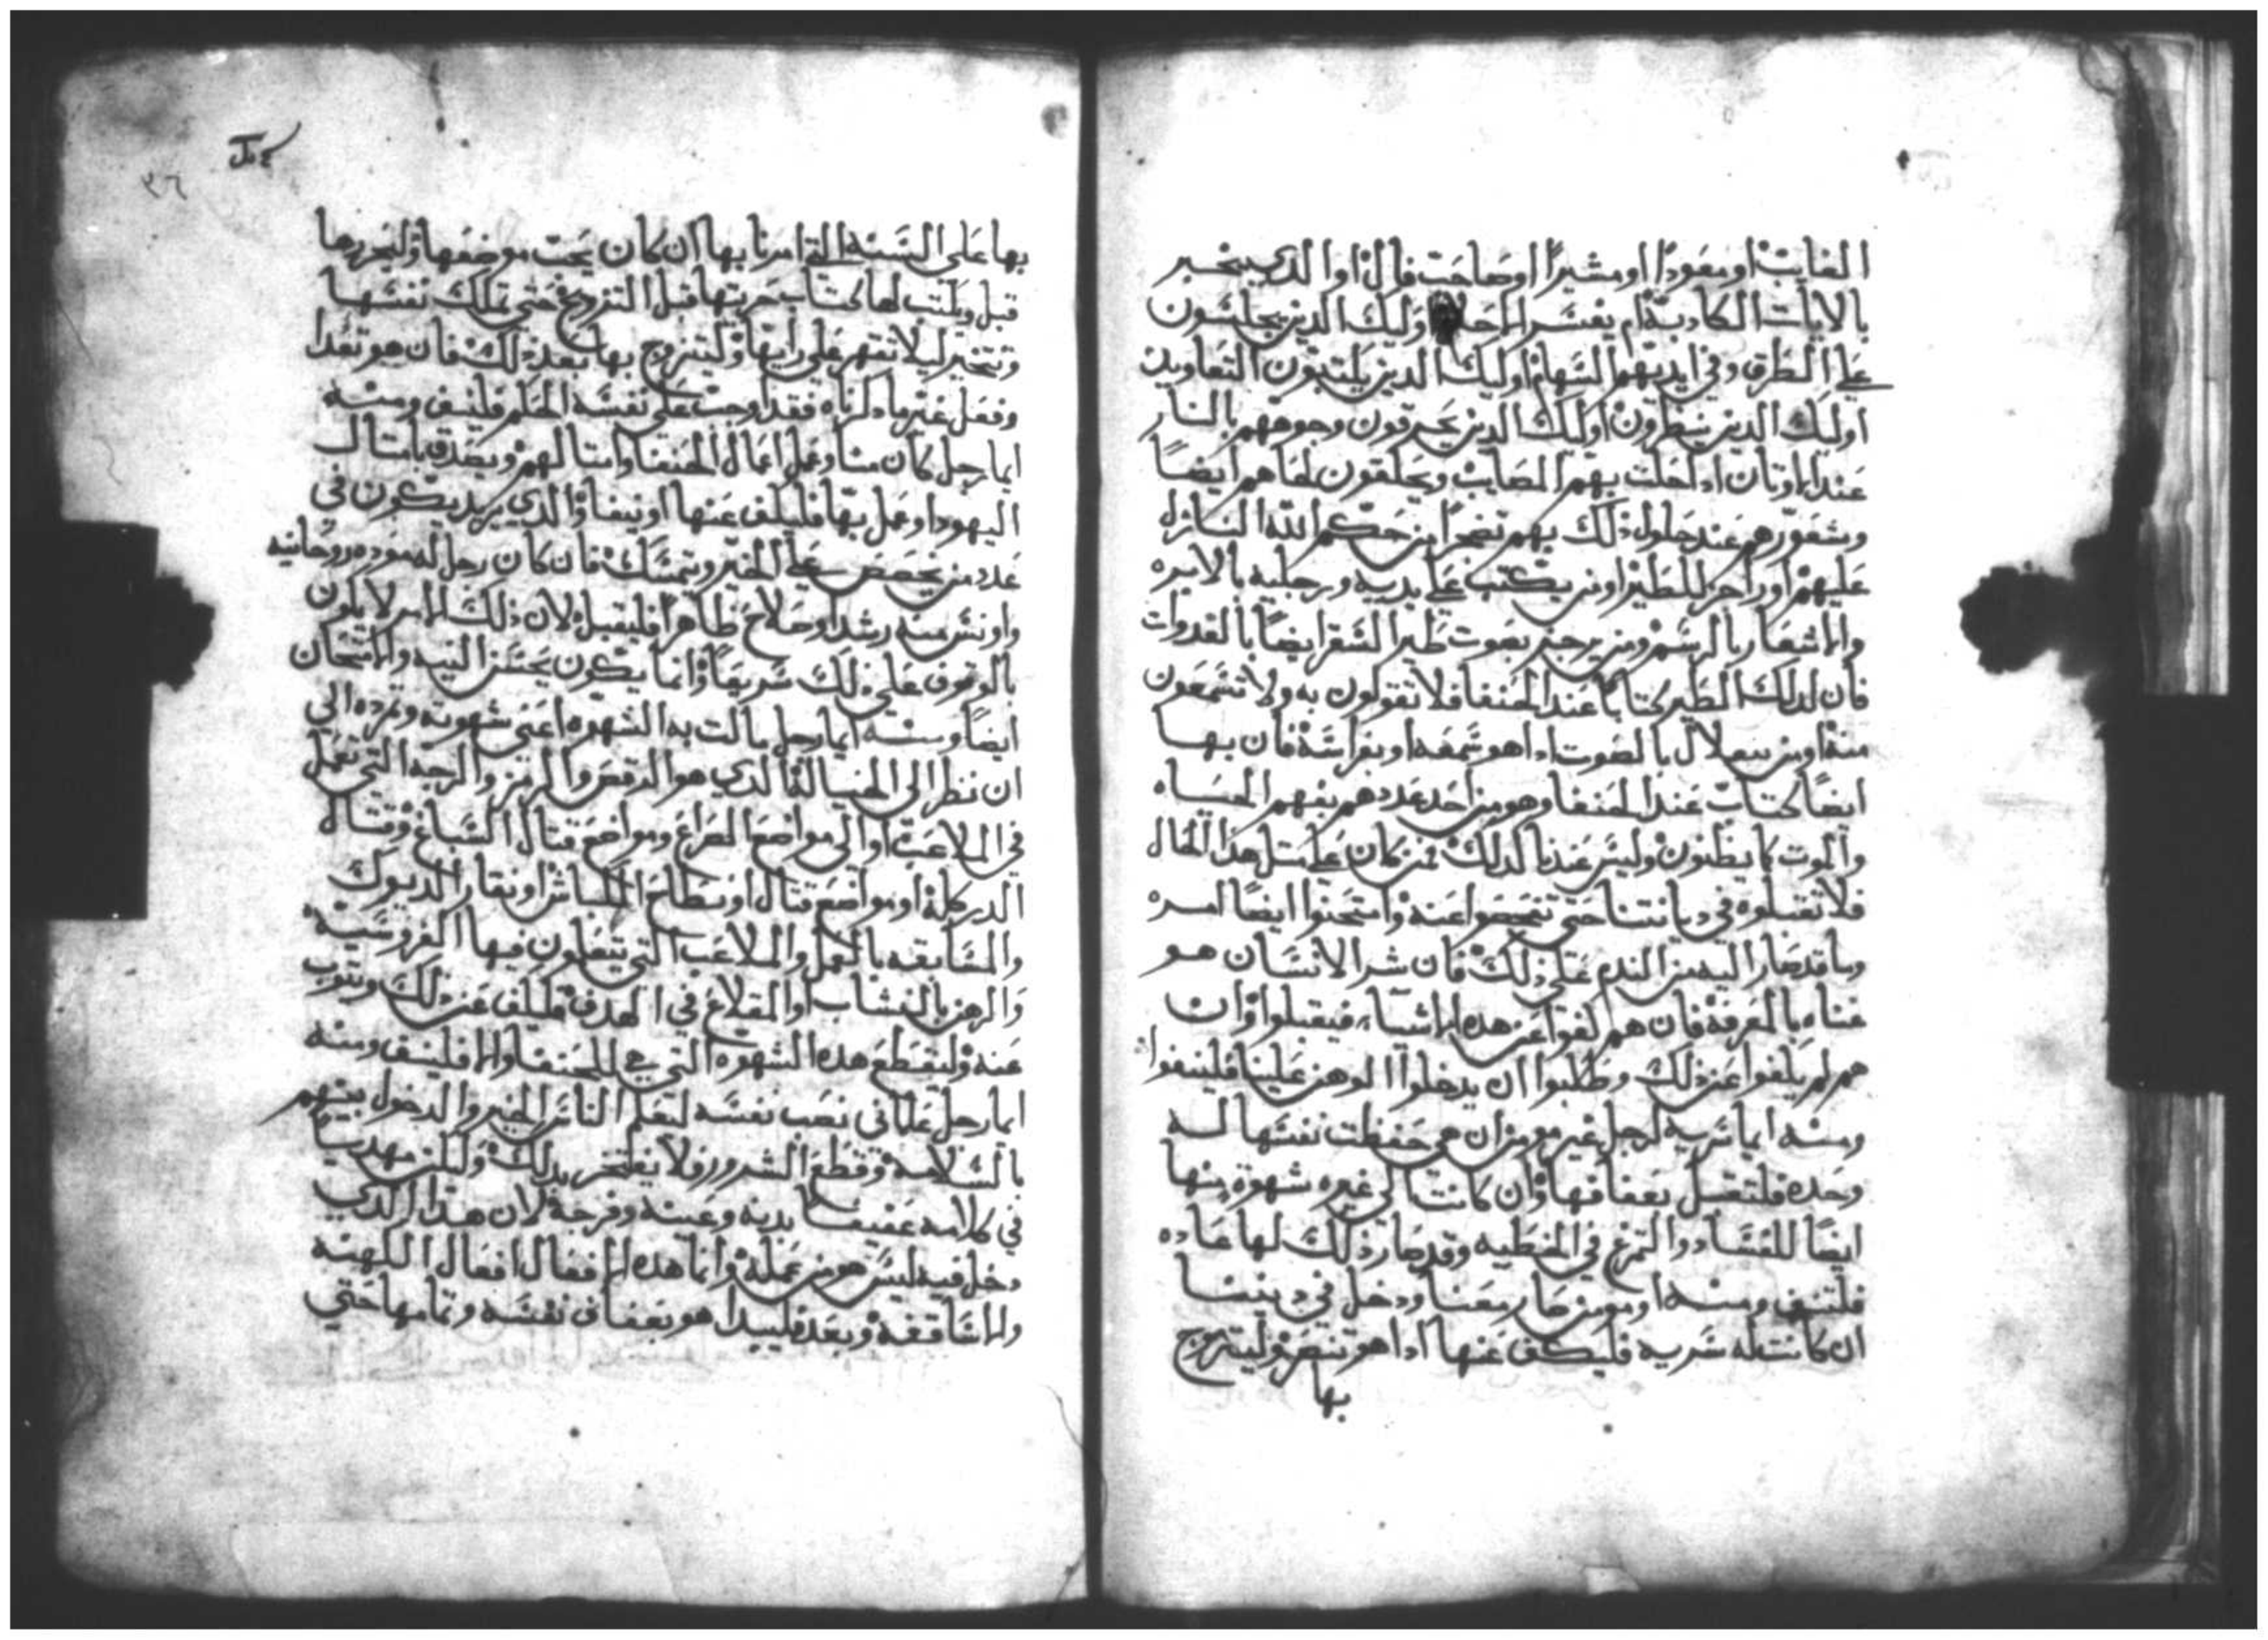 الغايب او معودا او مشيرا او صاحت فال او الدي يخبر
بالايات الكادبة ام يفسر الاحلام اوليك الدين يجلسون
علي الطرق وفي ايديهم السهام اوليك الدين يكتبون التعاويد
اوليك الدين ينظرون اوليك الدين يحرقون وجوههم بالنار
عند الاوتان ادا حلت بهم المصايب ويحلقون لحاهم ايضا
وشعورهم عند حلول ذلك بهم تضجرا من حكم الله النازل
عليهم او زاجر للطير او من يكتب علي يديه ورجليه بالابره
والاشعار بالرسم ومن يرجز بصوت طير السقر ايضا بالغدوات
فان لدلك الطير كتابا عند الحنفا فلا تقولون به ولا تسمعون
منه او من يتعلال بالصوت ادا هو سمعه او بفراسة فان بها
ايضا كتاب عند الحنفا وهو من احد عددهم بفهم الحياه
والموت كما يظنون وليس عندنا لدلك فمن كان علي متل هدا الحال
فلا تقبلوه في ديانتنا حتي تفحصوا عنه وامتحنوا ايضا امره
وما قد صار اليه من الندم علي ذلك فان شر الانسان هو
عناه بالمعرفة فان هم كفوا عن هده الاشياء فيقبلوا وان
هم لم يكفوا عن ذلك وطلبوا ان يدخلوا الوهن علينا فلينفوا
ومنه ايما سريه لرجل غير مومن ان هي حفظت نفسها له
وحده فلتقبل بعفافها وان كانت الي غيره شهوة منها
ايضا للفساد والتمرغ في الخطيه وقد صار ذلك لها عاده
فلتنف ومنه او مومن صار معنا ودخل في ديننا
ان كانت له سريه فليكف عنها ادا هو تنصر وليتزوج
بها
٣٦
بها على السنه التي امرنا بها ان كان يحب موضعها وليحررها
قبل ويكتب لها كتاب حريتها قبل التزويج حتي تملك نفسها
وتتخير ليلا تقهر علي رايها وليتزوج بها بعد ذلك فان هو تعدا
وفعل غير ما دكرناه فقد اوجب علي نفسه الحكم فلينف ومنه
ايما رجل كان منا وعمل اعمال الحنفا وامتالهم ويصدق بامتال
اليهود او عمل بها فليكف عنها او ينفا والدي يريد يكون في
عدد من يحصص علي الخير ويتمسك فان كان رجل له موده روحانيه
واونس منه رشدا وصلاح ظاهرا فليقبل لان ذلك الامر لا يكون
بالوقوف علي ذلك سريعا وانما يكون بحسن النيه والامتحان
ايضا ومنه ايما رجل مالت به الشهوه اعني شهوته وتمرده الي
ان نظر الي الخيالة الدي هو الرقص والرمز والرجه التي تعمل
في الملاعب او الي مواضع الصراع ومواضع قتال السباع وقتال
الدركلة او مواضع قتال او نطاح الكباش او نقار الديوك
والمسابقه بالخيل والملاعب التي يتعلون فيها الفروسيه
والرهن بالنشاب او المقلاع في الهدف فليكف عن ذلك ويتوب
عنه وليقطع هده الشهوه التي هي للحنفا والا فلينف ومنه
ايما رجل علماني نصب نفسه لتعليم الناس الخير والدخول بينهم
بالسلامه وقطع الشرور فلا يفتخر بدلك وليكن مهدبا
في كلامه عفيفا بدينه وعينه وفرحه لان هدا الدي
دخل فيه ليس هو من عمله وانما هده الافعال افعال الكهنه
والاساقفه وبعد فليبدا هو بعفاف نفسه وتمامها حتي